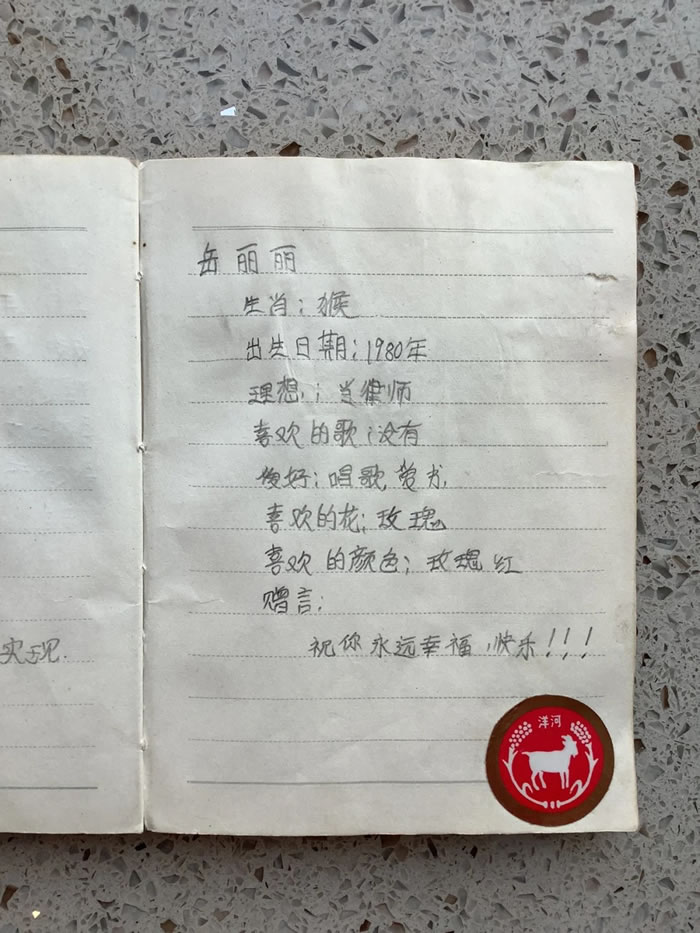 实现.
岳丽丽
生肖：猴
出生日期：1980年
理想：当律师
喜欢的歌：没有
爱好：唱歌，看书
喜欢的花：玫瑰
喜欢的颜色：玫瑰红
赠言：
祝你永远幸福，快乐！！！
洋河